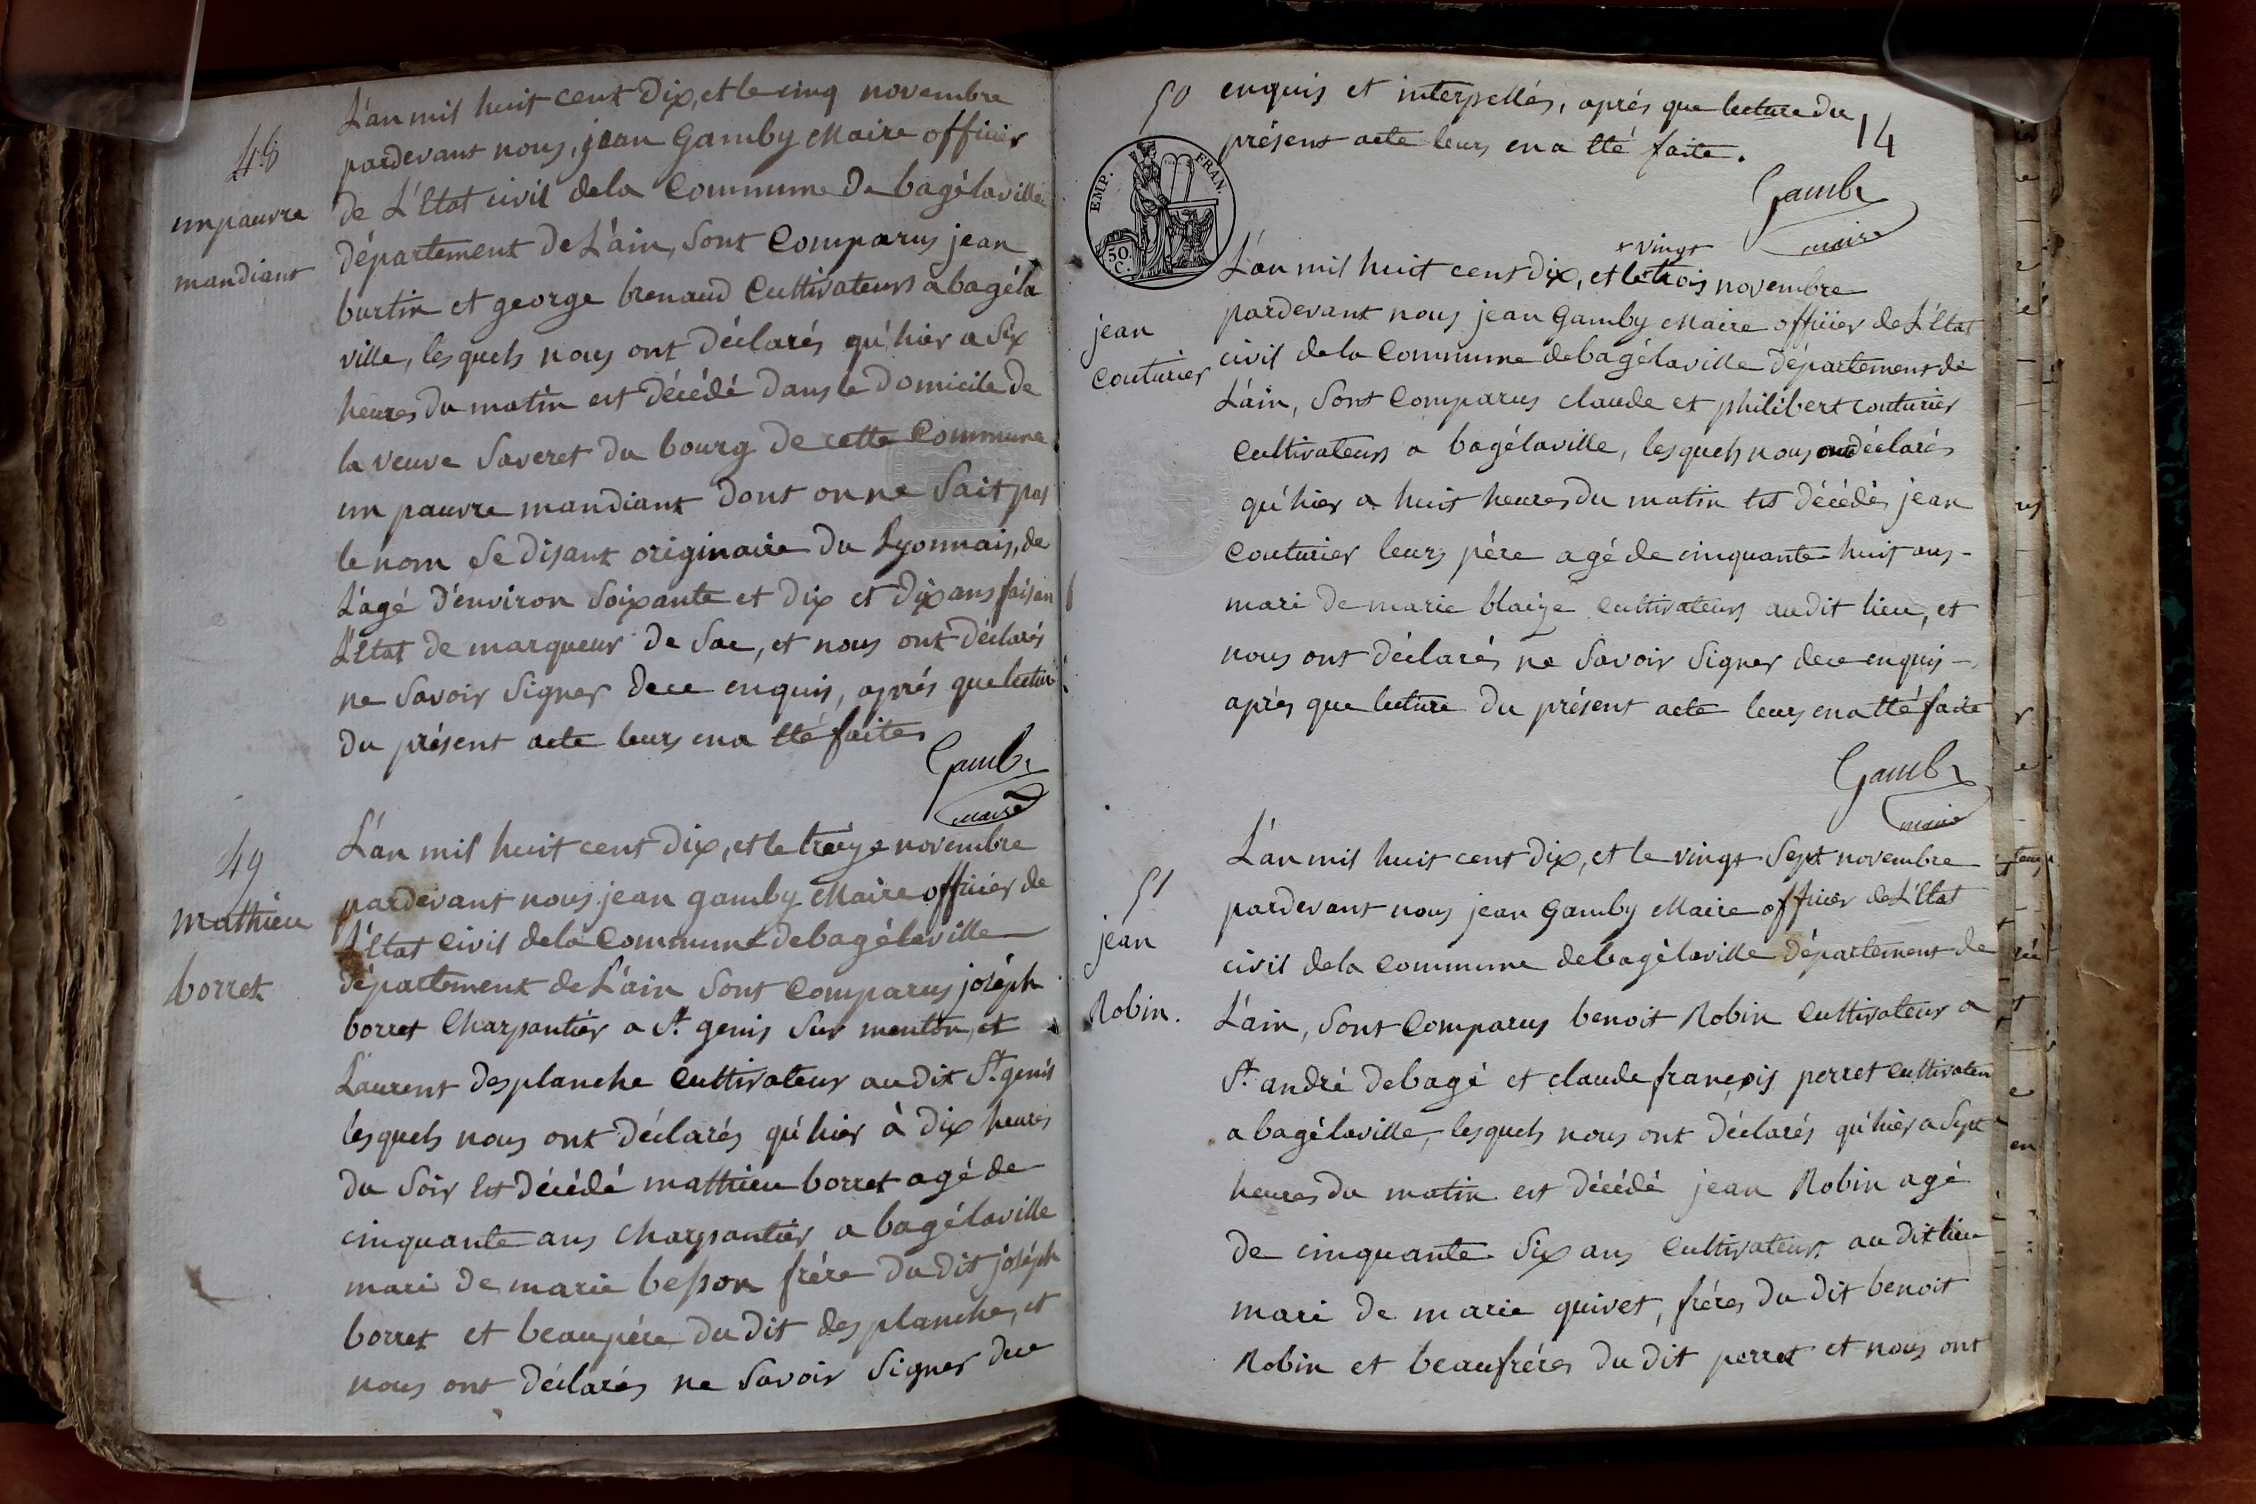 48
un pauvre
mandiant
L'an mil huit cent dix, et le cinq novembre
pardevant nous, jean Gamby Maire officier
de L'Etat civil de la Commune de bagélaville
département de L'ain, Sont Comparus jean
burtin et george brenaud Cultivateurs a bagéla
ville, lesquels nous ont déclarés qu'hier a Six
heures du matin est décédé dans le domicile de
la veuve Saveret du bourg de cette Commune
un pauvre mandiant dont on ne Sait pas
le nom Se disant originaire du Lyonnais, de
L'agé d'environ Soixante et dix et dix ans faisan
L'Etat de marqueur de Sac, et nous ont déclarés
ne Savoir Signer de ce enquis, aprés que lectur
du présent acte leurs en a Eté faite.
Gamby
maire
49
mathieu
borret
L'an mil huit cent dix, et le treize novembre
pardevant nous jean gamby Maire officier de
L'Etat Civil de la Commune de bagélaville
département de L'ain Sont Comparus joséph
borret Charpantiér a St. genis Sur menton, et
Laurent desplanche Cultivateur au dit St. genis
lesquels nous ont déclarés qu'hier à dix heures
du Soir Est décédé mathieu borret agé de
cinquante ans Charpantiér a bagélaville
mari de marie besson frére du dit joséph
borret et beaupére du dit desplanche, et
nous ont déclarés ne Savoir Signer de ce
enquis et interpellés, aprés que lecture du
présent acte leurs en a Eté faite.
14
Gamby
maire
EMP. FRAN.
50 C.
50
jean
Couturier
+ vingt
L'an mil huit cent dix, et le trois novembre
pardevant nous jean Gamby Maire officier de L'Etat
civil de la Commune de bagélaville département de
L'ain, Sont Comparus claude et philibert couturier
Cultivateurs a bagélaville, lesquels nous ont déclarés
qu'hier a huit heures du matin Est décédés jean
Couturier leurs pére agé de cinquante huit ans -
mari de marie blaize Cultivateurs au dit lieu, et
nous ont déclarés ne Savoir Signer de ce enquis -
aprés que lecture du présent acte leurs en a Eté faite
Gamby
maire
51
jean
Robin.
L'an mil huit cent dix, et le vingt Sept novembre
pardevant nous jean Gamby Maire officier de L'Etat
civil de la Commune de bagélaville département de
L'ain, Sont Comparus benoit Robin Cultivateur a
St. andré de bagé et claude françois perret Cultivateu
a bagélaville, lesquels nous ont déclarés qu'hier a Sept
heures du matin est décédé jean Robin agé
de cinquante Six ans Cultivateur au dit lieu
mari de marie quivet, fréres du dit benoit
Robin et beaufréres du dit perret et nous ont